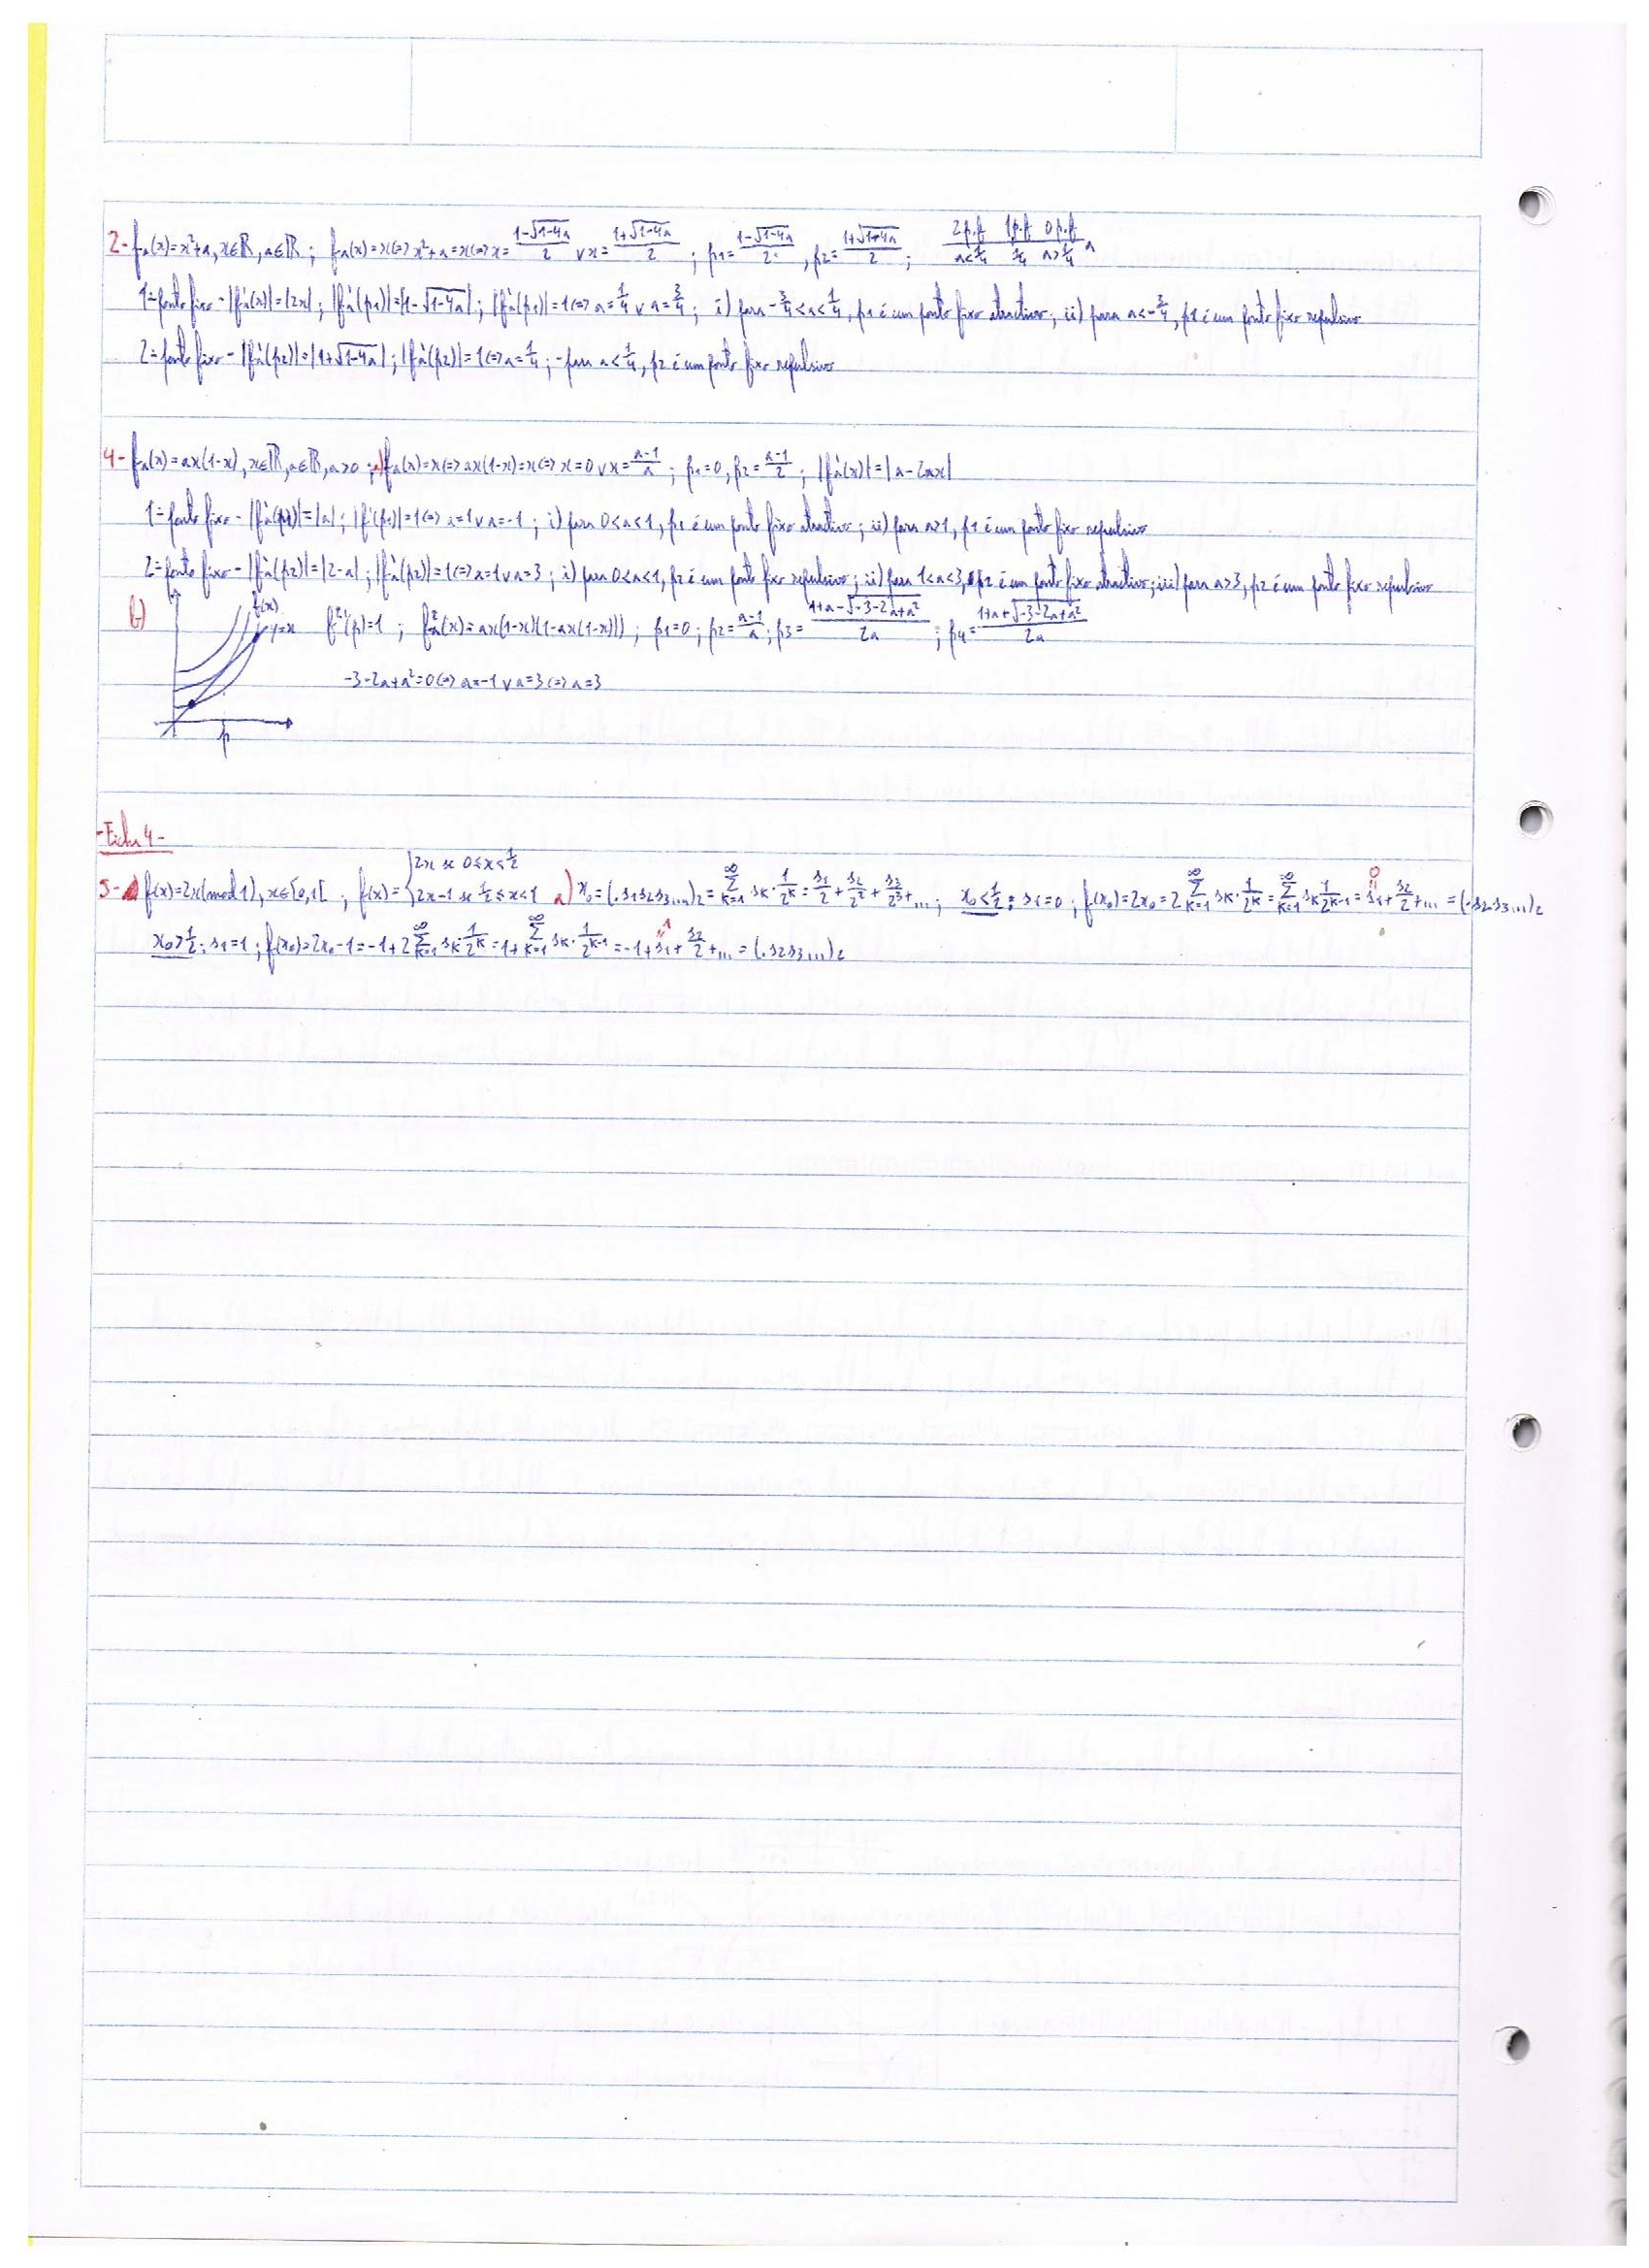 2- fₐ(x)=x²+a, x∈ℝ, a∈ℝ ; fₐ(x)=x(=) x²+a=x(=) x= (1-√(1-4a))/2 ∨ x= (1+√(1-4a))/2 ; p₁= (1-√(1-4a))/2 , p₂= (1+√(1+4a))/2 ; 2p.f 1p.f 0p.f / a<1/4 1/4 a>1/4 a
1º ponto fixo - |fₐ'(x)|=|2x| ; |fₐ'(p₁)|=|1-√(1-4a)| ; |fₐ'(p₁)|=1(=) a=1/4 ∨ a=3/4 ; i) para -3/4<a<1/4, p₁ é um ponto fixo atractivo ; ii) para a<-3/4, p₁ é um ponto fixo repulsivo
2º ponto fixo - |fₐ'(p₂)|=|1+√(1-4a)| ; |fₐ'(p₂)|=1(=) a=1/4 ; - para a<1/4, p₂ é um ponto fixo repulsivo
4- fₐ(x)=ax(1-x), x∈ℝ, a∈ℝ, a>0 ; a) fₐ(x)=x(=) ax(1-x)=x(=) x=0 ∨ x= (a-1)/a ; p₁=0, p₂= (a-1)/2 ; |fₐ'(x)|=|a-2ax|
1º ponto fixo - |fₐ'(p₁)|=|a| ; |f'(p₁)|=1(=) a=1 ∨ a=-1 ; i) para 0<a<1, p₁ é um ponto fixo atractivo ; ii) para a>1, p₁ é um ponto fixo repulsivo
2º ponto fixo - |fₐ'(p₂)|=|2-a| ; |fₐ'(p₂)|=1(=) a=1 ∨ a=3 ; i) para 0<a<1, p₂ é um ponto fixo repulsivo ; ii) para 1<a<3, p₂ é um ponto fixo atractivo ; iii) para a>3, p₂ é um ponto fixo repulsivo
b) f(x) y=x p f²'(p)=1 ; fₐ²(x)=ax(1-x)(1-ax(1-x))) ; p₁=0 ; p₂= (a-1)/a ; p₃= (1+a-√(-3-2a+a²))/2a ; p₄= (1+a+√(-3-2a+a²))/2a
-3-2a+a²=0(=) a=-1 ∨ a=3(=) a=3
-Ficha 4-
5- f(x)=2x(mod 1), x∈[0,1[ ; f(x)= { 2x se 0≤x<1/2 ; 2x-1 se 1/2≤x<1 a) x₀=(.s₁s₂s₃...)₂= ∑_{k=1}^∞ sₖ·1/2ᵏ = s₁/2 + s₂/2² + s₃/2³+... ; x₀<1/2 : s₁=0 ; f(x₀)=2x₀=2∑_{k=1}^∞ sₖ·1/2ᵏ = ∑_{k=1}^∞ sₖ 1/2ᵏ⁻¹ = s₁(=0)+ s₂/2+... =(.s₂s₃...)₂
x₀>1/2 : s₁=1 ; f(x₀)=2x₀-1=-1+2∑_{k=1}^∞ sₖ·1/2ᵏ=-1+∑_{k=1}^∞ sₖ·1/2ᵏ⁻¹=-1+s₁(=1)+ s₂/2+... =(.s₂s₃...)₂